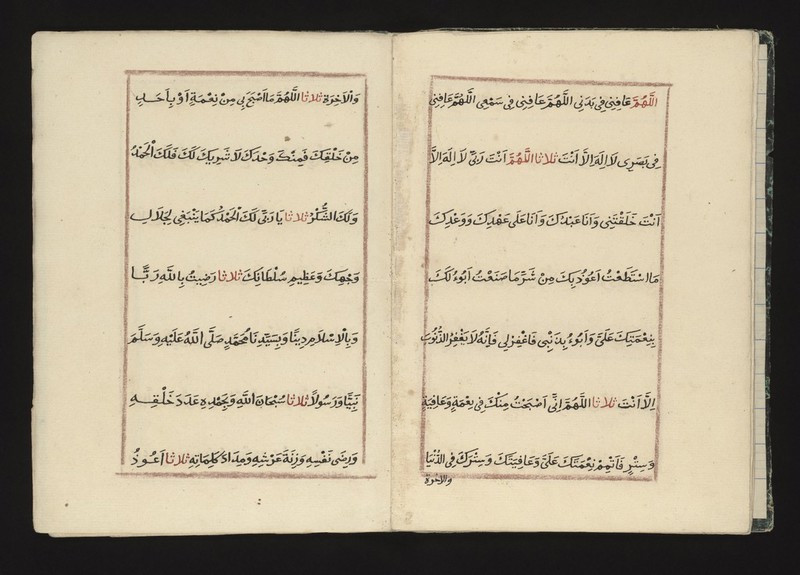 اَللّٰهُمَّ عَافِنِي فِي بَدَنِي اَللّٰهُمَّ عَافِنِي فِي سَمْعِي اَللّٰهُمَّ عَافِنِي
فِي بَصَرِي لَا اِلٰهَ اِلَّا اَنْتَ ثلاثا اَللّٰهُمَّ اَنْتَ رَبِّي لَا اِلٰهَ اِلَّا
اَنْتَ خَلَقْتَنِي وَاَنَا عَبْدُكَ وَاَنَا عَلَى عَهْدِكَ وَوَعْدِكَ
مَا اسْتَطَعْتُ اَعُوذُ بِكَ مِنْ شَرِّ مَا صَنَعْتُ اَبُوءُ لَكَ
بِنِعْمَتِكَ عَلَيَّ وَاَبُوءُ بِذَنْبِي فَاغْفِرْ لِي فَاِنَّهُ لَا يَغْفِرُ الذُّنُوبَ
اِلَّا اَنْتَ ثلاثا اَللّٰهُمَّ اِنِّي اَصْبَحْتُ مِنْكَ فِي نِعْمَةٍ وَعَافِيَةٍ
وَسِتْرٍ فَاَتْمِمْ نِعْمَتَكَ عَلَيَّ وَعَافِيَتَكَ وَسِتْرَكَ فِي الدُّنْيَا
والاخرة
وَالْاٰخِرَةِ ثلاثا اَللّٰهُمَّ مَا اَصْبَحَ بِي مِنْ نِعْمَةٍ اَوْ بِاَحَدٍ
مِنْ خَلْقِكَ فَمِنْكَ وَحْدَكَ لَا شَرِيكَ لَكَ فَلَكَ الْحَمْدُ
وَلَكَ الشُّكْرُ ثلاثا يَا رَبِّي لَكَ الْحَمْدُ كَمَا يَنْبَغِي لِجَلَالِ
وَجْهِكَ وَعَظِيمِ سُلْطَانِكَ ثلاثا رَضِيتُ بِاللّٰهِ رَبًّا
وَبِالْاِسْلَامِ دِينًا وَبِسَيِّدِنَا مُحَمَّدٍ صَلَّى اللّٰهُ عَلَيْهِ وَسَلَّمَ
نَبِيًّا وَرَسُولًا ثلاثا سُبْحَانَ اللّٰهِ وَبِحَمْدِهِ عَدَدَ خَلْقِهِ
وَرِضَى نَفْسِهِ وَزِنَةَ عَرْشِهِ وَمِدَادَ كَلِمَاتِهِ ثلاثا اَعُوذُ